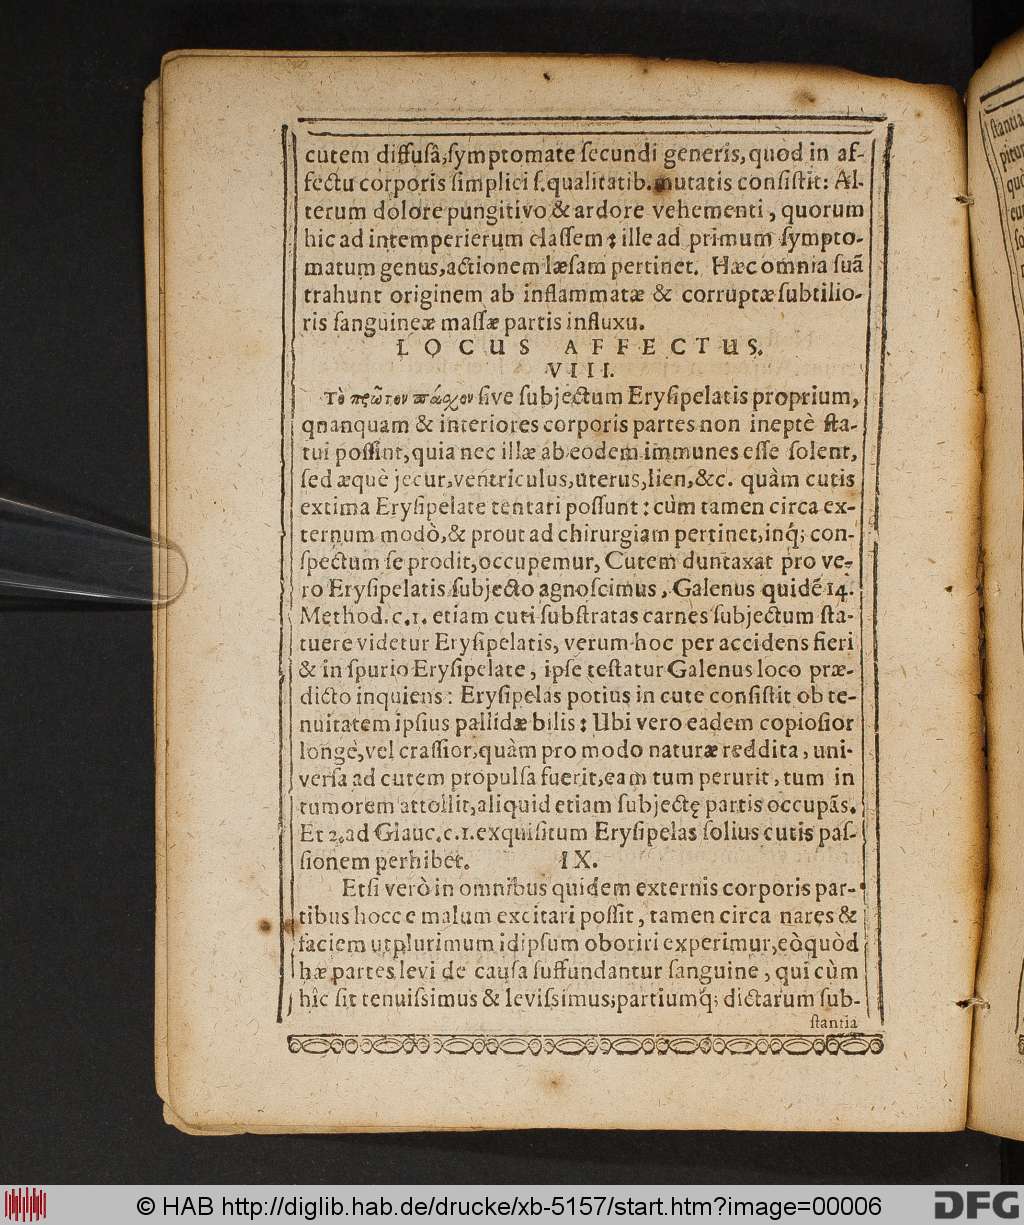 cutem diffusâ, symptomate secundi generis, quod in af-
fectu corporis simplici s. qualitatib. mutatis consistit: Al-
terum dolore pungitivo & ardore vehementi, quorum
hic ad intemperierum classem: ille ad primum sympto-
matum genus, actionem læsam pertinet. Hæc omnia suā
trahunt originem ab inflammatæ & corruptæ subtilio-
ris sanguineæ massæ partis influxu.
LOCUS AFFECTUS.
VIII.
Τὸ πρῶτον πάσχον sive subjectum Erysipelatis proprium,
qnanquam & interiores corporis partes non ineptè sta-
tui possint, quia nec illæ ab eodem immunes esse solent,
sed æquè jecur, ventriculus, uterus, lien, &c. quàm cutis
extima Erysipelate tentari possunt: cùm tamen circa ex-
ternum modò, & prout ad chirurgiam pertinet, inq́; con-
spectum se prodit, occupemur, Cutem duntaxat pro ve-
ro Erysipelatis subjecto agnoscimus, Galenus quidē 14.
Method. c. 1. etiam cuti substratas carnes subjectum sta-
tuere videtur Erysipelatis, verum hoc per accidens fieri
& in spurio Erysipelate, ipse testatur Galenus loco præ-
dicto inquiens: Erysipelas potius in cute consistit ob te-
nuitatem ipsius pallidæ bilis: Ubi vero eadem copiosior
longè, vel crassior, quàm pro modo naturæ reddita, uni-
versa ad cutem propulsa fuerit, eam tum perurit, tum in
tumorem attollit, aliquid etiam subjectę partis occupās.
Et 2. ad Glauc. c. 1. exquisitum Erysipelas solius cutis pas-
sionem perhibet. IX.
Etsi verò in omnibus quidem externis corporis par-
tibus hocce malum excitari possit, tamen circa nares &
faciem utplurimum idipsum oboriri experimur, eòquòd
hæ partes levi de causa suffundantur sanguine, qui cùm
hîc sit tenuissimus & levissimus; partiumq́; dictarum sub-
stantia
© HAB http://diglib.hab.de/drucke/xb-5157/start.htm?image=00006
DFG